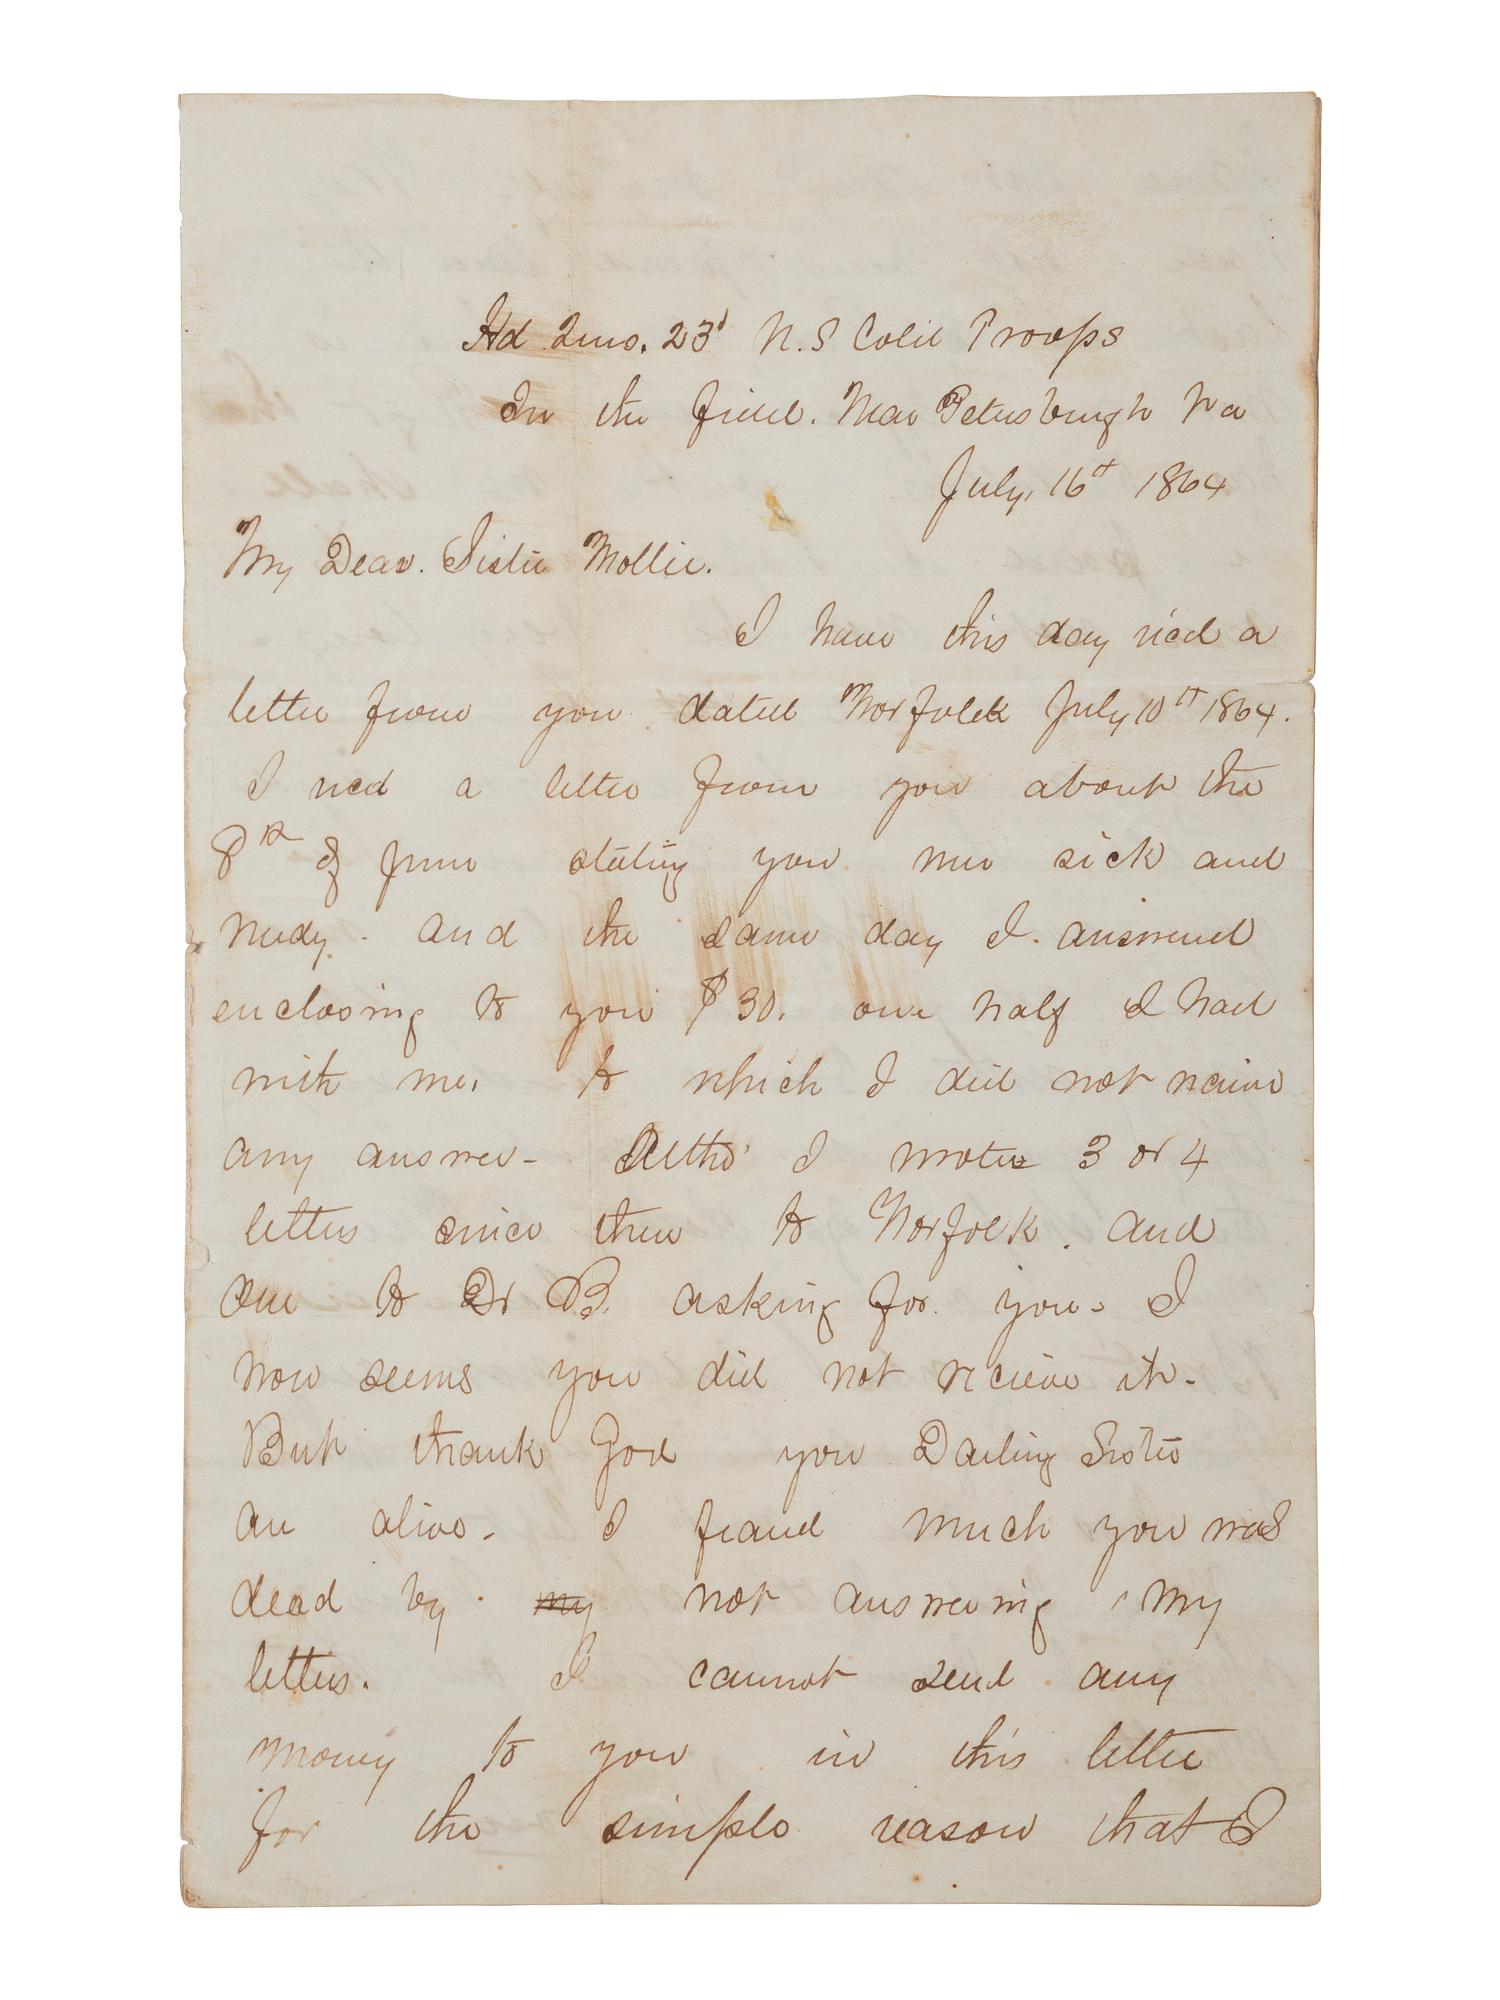 Hd Qurs. 23d U.S Cold Troops
In the field. Near Petersburgh Va
July, 16th 1864
My Dear. Sister Mollie.
I have this day recd a
letter from you dated Norfolk July 10th 1864.
I recd a letter from you about the
8th of June stating you were sick and
needy. and the same day I answered
enclosing to you $30. one half I had
with me, to which I did not receive
any answer - Altho' I wrote 3 or 4
letters since then to Norfolk. and
one to Dr B. asking for you - I
now seems you did not recieve it -
But thank God you Darling Sister
are alive - I feared much you was
dead by my not answering my
letters. I cannot send any
money to you in this letter
for the simple reason that I